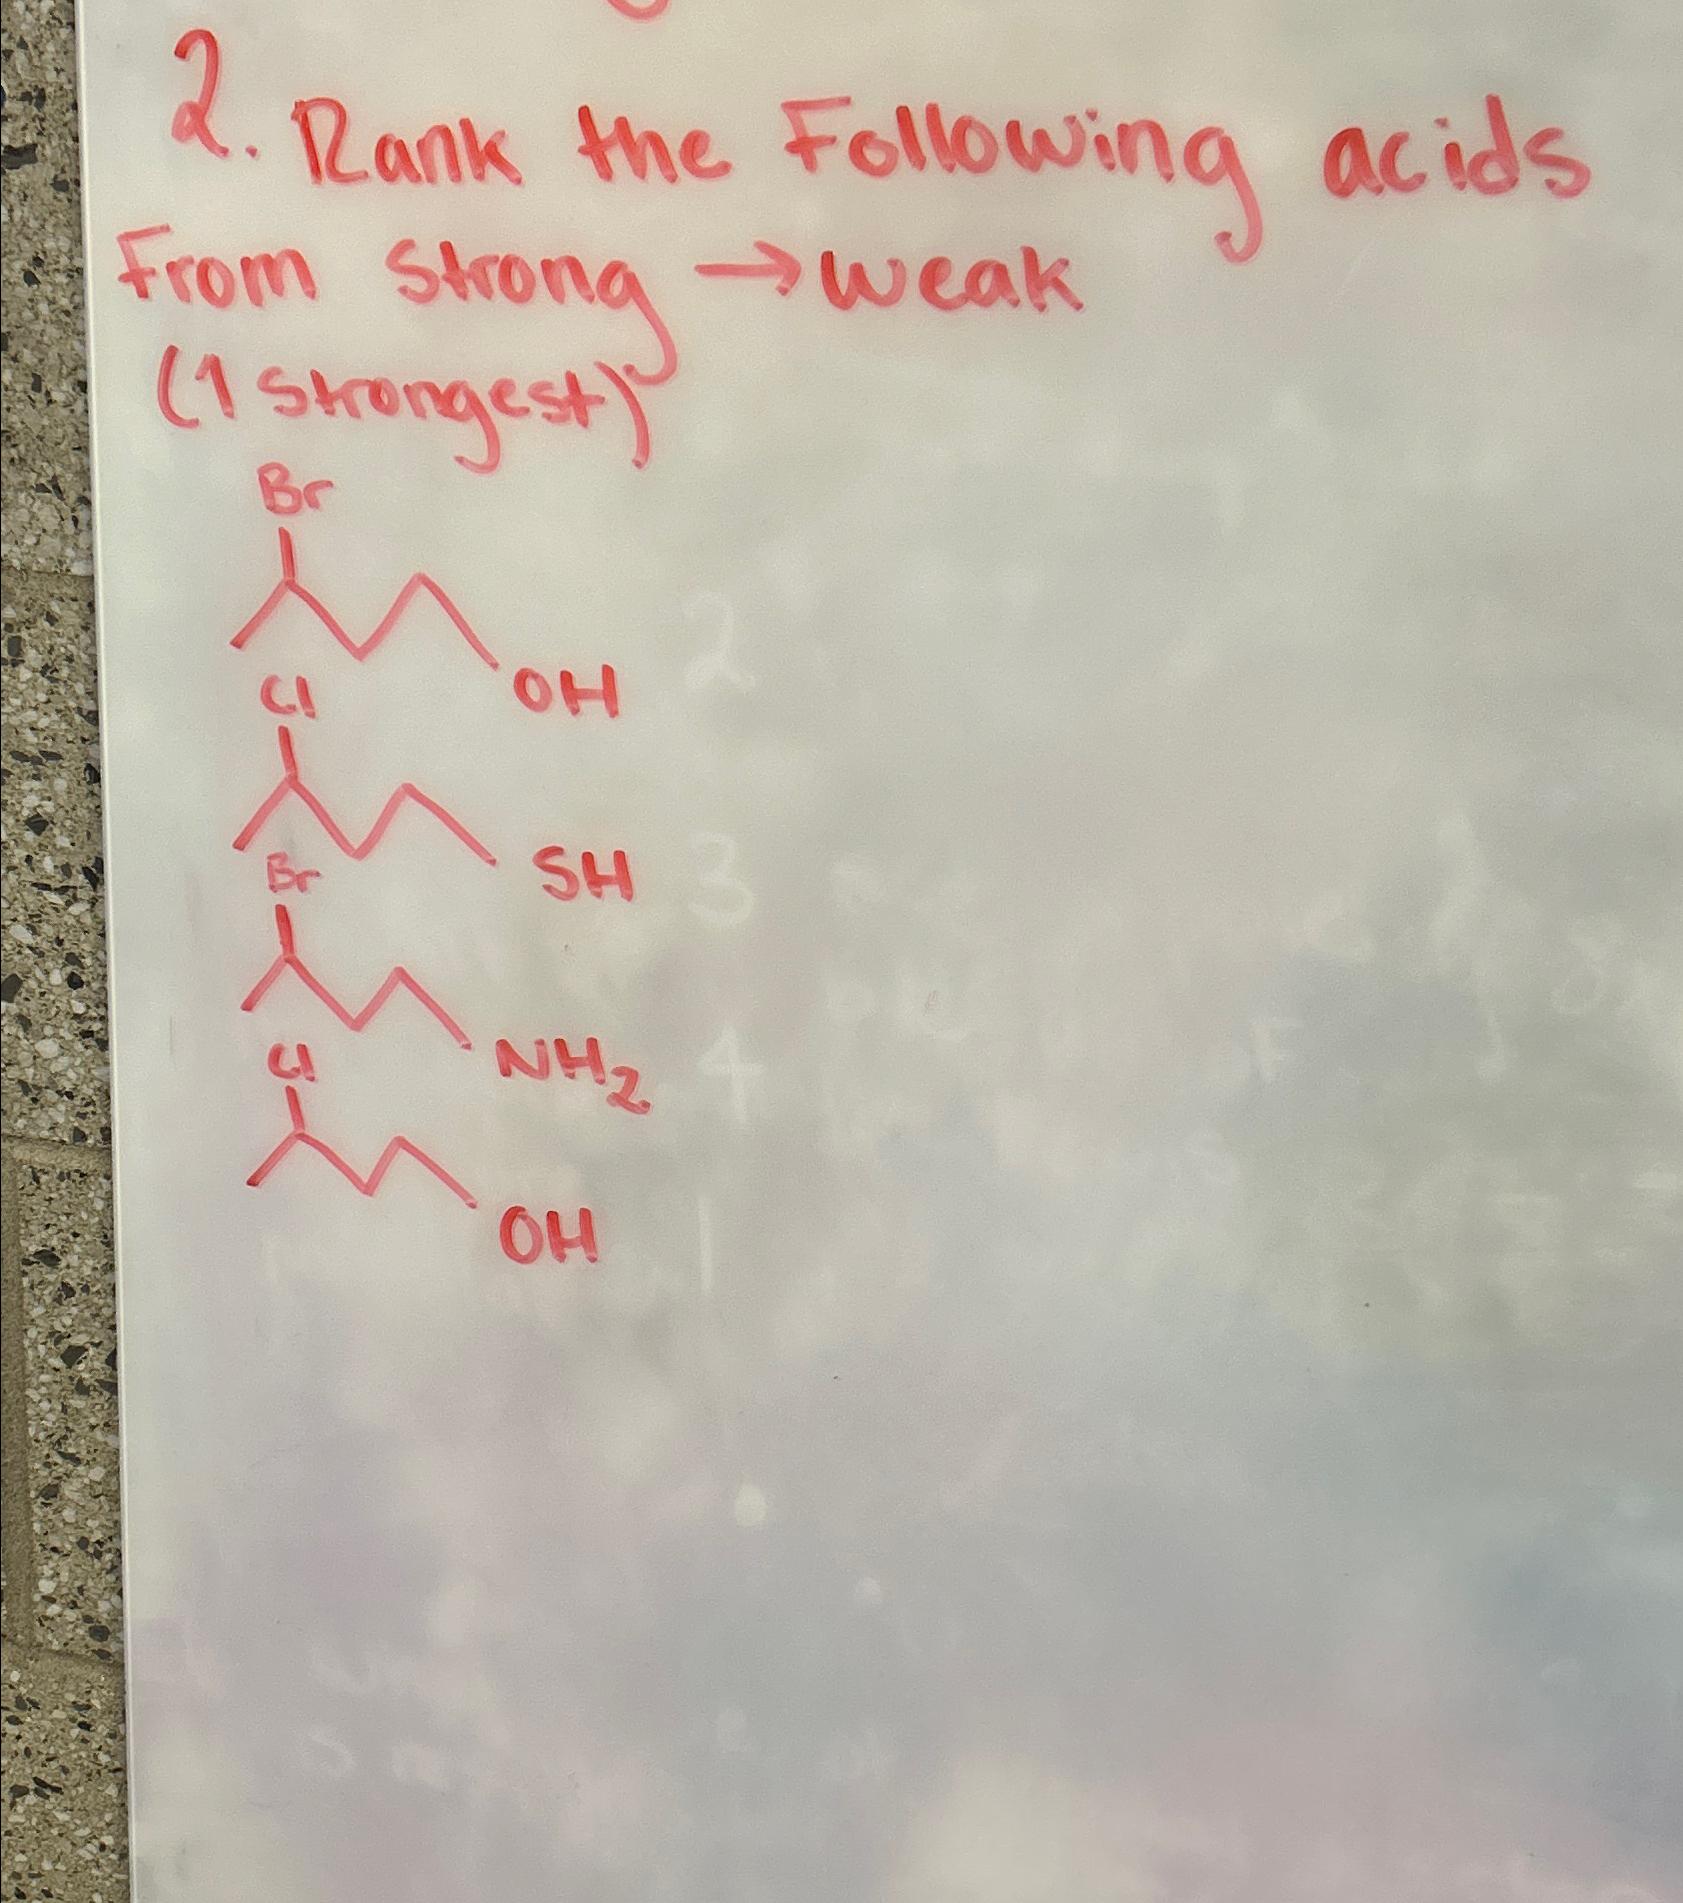 2. Rank the Following acids
From Strong → weak
(1 strongest)
Br
OH 2
Cl
SH 3
Br
NH2 4
Cl
OH 1